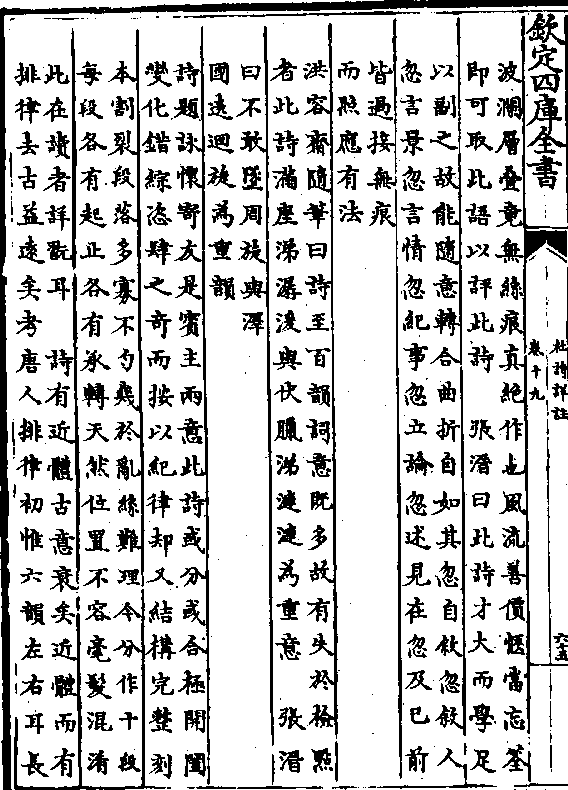 欽定四庫全書
杜詩詳註
卷十九
六五
波瀾層疊竟無絲痕真絕作也風流善價愜當忘筌
即可取此語以評此詩 張溍曰此詩才大而學足
以副之故能隨意轉合曲折自如其忽自敘忽敘人
忽言景忽言情忽紀事忽立論忽述見在忽及已前
皆過接無痕
而照應有法
洪容齋隨筆曰詩至百韻詞意既多故有失於檢點
者此詩滿座涕潺湲與伏臘涕漣漣為重意 張溍
曰不敢墜周旋與澤
國遶迴旋為重韻
詩題詠懷寄友是賓主兩意此詩或分或合極開闔
變化錯綜恣肆之奇而按以紀律却又結構完整刻
本割裂段落多寡不勻幾於亂絲難理今分作十段
每段各有起止各有承轉天然位置不容毫髮混淆
此在讀者詳翫耳 詩有近體古意衰矣近體而有
排律去古益遠矣考唐人排律初惟六韻左右耳長